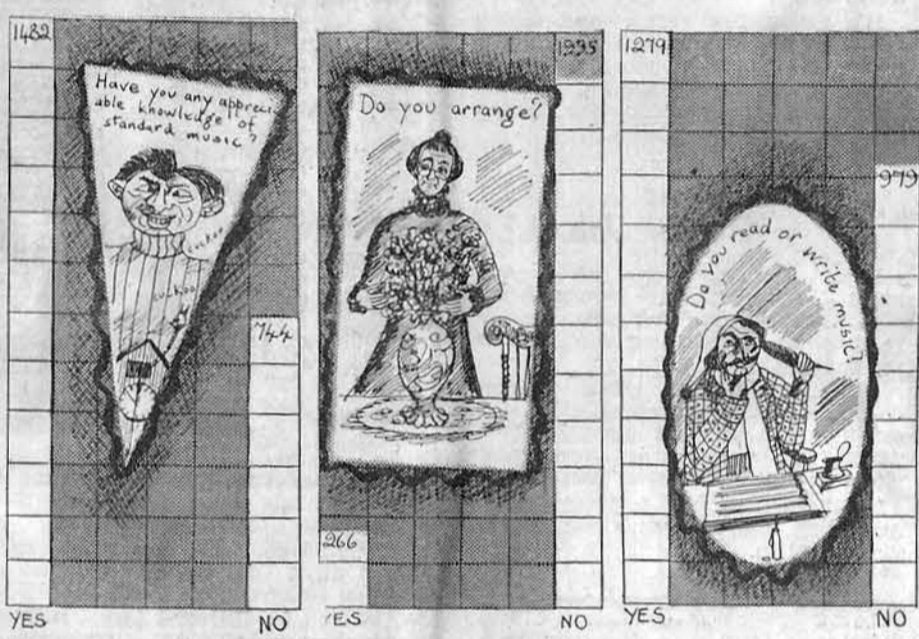 1482
Have you any appreci-
able knowledge of
standard music?
cuckoo
cuckoo
744
YES
NO
1995
Do you arrange?
266
YES
NO
1279
Do you read or write music?
979
YES
NO